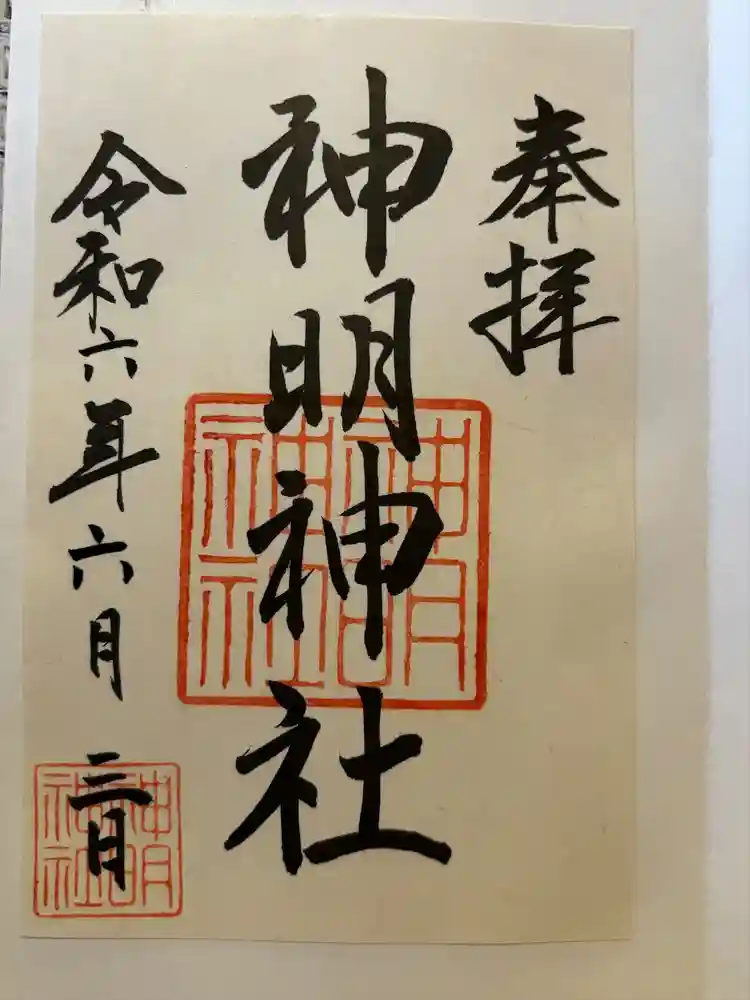 奉拝
神明神社
神明神社
令和六年六月三日
神明神社